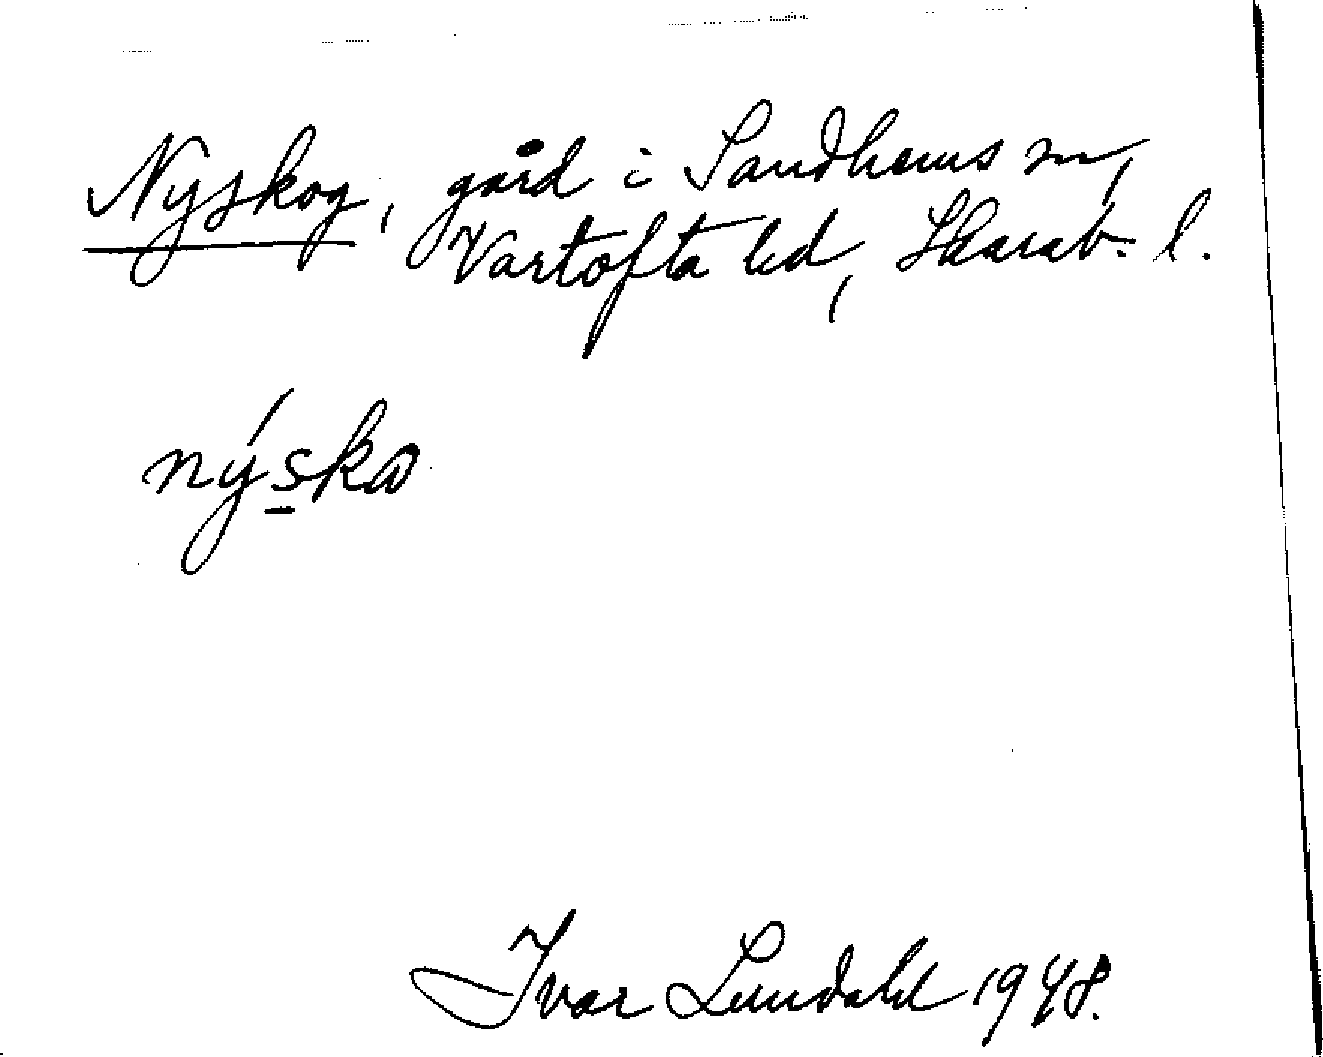 Nyskog, gård i Sandhems sn,
Vartofta hd, Skarab. l.
nýsko
Ivar Lundahl 1948.